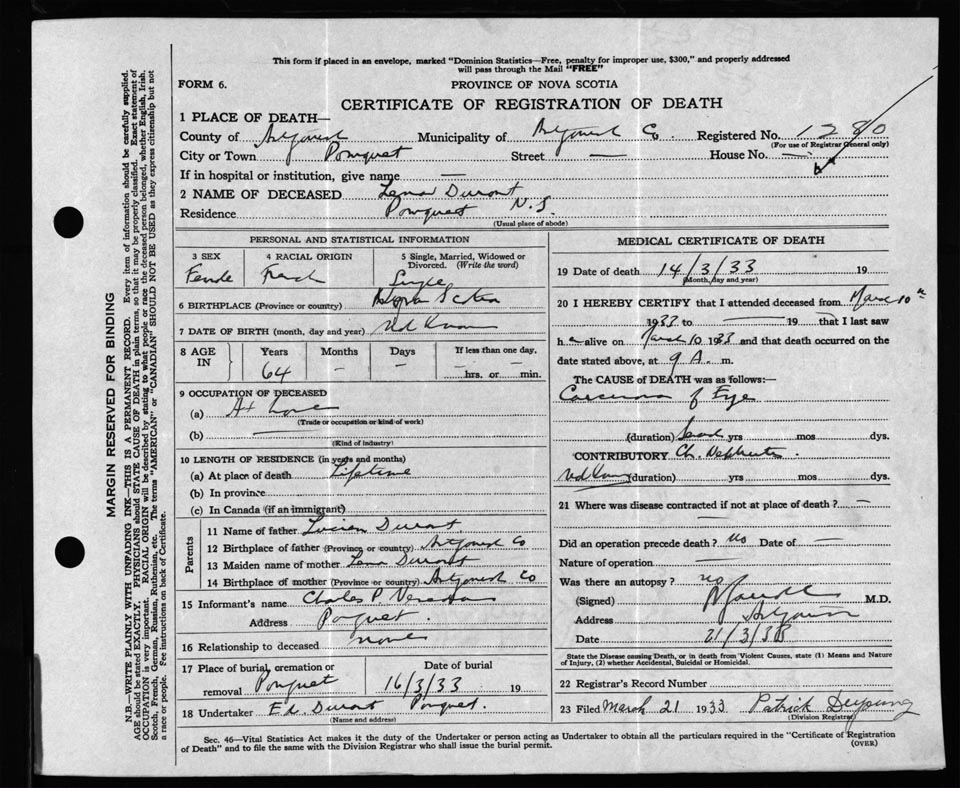 This form if placed in an envelope, marked "Dominion Statistics—Free, penalty for improper use, $300," and properly addressed
will pass through the Mail "FREE"
FORM 6.
PROVINCE OF NOVA SCOTIA
CERTIFICATE OF REGISTRATION OF DEATH
1 PLACE OF DEATH—
County of Antigonish Municipality of Antigonish Co. Registered No. 1280
(For use of Registrar General only)
City or Town Pomquet Street — House No. —
If in hospital or institution, give name —
2 NAME OF DECEASED Lena Durant
Residence Pomquet N.S.
(Usual place of abode)
PERSONAL AND STATISTICAL INFORMATION
3 SEX 4 RACIAL ORIGIN 5 Single, Married, Widowed or
Divorced. (Write the word)
Female French Single
6 BIRTHPLACE (Province or country) Nova Scotia
7 DATE OF BIRTH (month, day and year) Not Known
8 AGE IN Years Months Days If less than one day,
64 — — hrs. or min.
9 OCCUPATION OF DECEASED
(a) At home
(Trade or occupation or kind of work)
(b) —
(Kind of industry)
10 LENGTH OF RESIDENCE (in years and months)
(a) At place of death Lifetime
(b) In province
(c) In Canada (if an immigrant)
Parents
11 Name of father Lucien Durant
12 Birthplace of father (Province or country) Antigonish Co
13 Maiden name of mother Lena Durant
14 Birthplace of mother (Province or country) Antigonish Co
15 Informant's name Charles P.
Address Pomquet.
16 Relationship to deceased none
17 Place of burial, cremation or
removal Pomquet
Date of burial
16/3/33 19
18 Undertaker Ed. Durant Pomquet.
(Name and address)
MEDICAL CERTIFICATE OF DEATH
19 Date of death 14/3/33 19
(Month, day and year)
20 I HEREBY CERTIFY that I attended deceased from March 10th
1933 to — 19 that I last saw
h er alive on March 10 1933 and that death occurred on the
date stated above, at 9 A. m.
The CAUSE of DEATH was as follows:—
Carcinoma of Eye
(duration) yrs mos dys.
CONTRIBUTORY Ch. Nephritis
Not Known (duration) yrs mos dys.
21 Where was disease contracted if not at place of death? —
—
Did an operation precede death? No Date of —
Nature of operation —
Was there an autopsy? no
(Signed) M.D.
Address Antigonish
Date 21/3/33
State the Disease causing Death, or in death from Violent Causes, state (1) Means and Nature
of Injury, (2) whether Accidental, Suicidal or Homicidal.
22 Registrar's Record Number
23 Filed March 21 1933 Patrick
(Division Registrar)
Sec. 46—Vital Statistics Act makes it the duty of the Undertaker or person acting as Undertaker to obtain all the particulars required in the "Certificate of Registration
of Death" and to file the same with the Division Registrar who shall issue the burial permit.
(OVER)
MARGIN RESERVED FOR BINDING
N.B.—WRITE PLAINLY WITH UNFADING INK—THIS IS A PERMANENT RECORD. Every item of information should be carefully supplied.
AGE should be stated EXACTLY. PHYSICIANS should STATE CAUSE OF DEATH in plain terms, so that it may be properly classified. Exact statement of
OCCUPATION is very important. RACIAL ORIGIN will be described by stating to what people or race the deceased person belonged, whether English, Irish,
Scotch, French, German, Russian, Ruthenian, etc. The terms "AMERICAN" or "CANADIAN" SHOULD NOT BE USED as they express citizenship but not
a race or people. See instructions on back of Certificate.